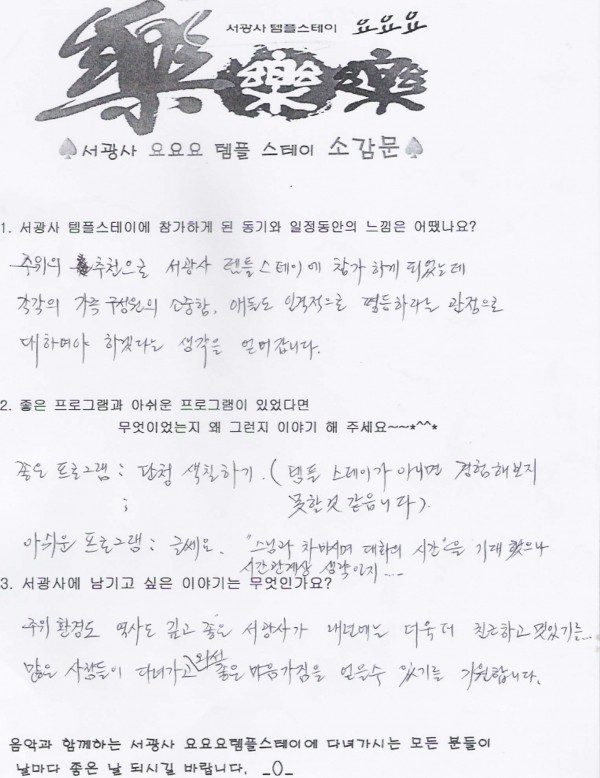 서광사 템플스테이 요요요
樂 樂 樂
♠서광사 요요요 템플 스테이 소감문♠
1. 서광사 템플스테이에 참가하게 된 동기와 일정동안의 느낌은 어땠나요?
주위의 추천으로 서광사 템플스테이에 참가하게 되었는데
각각의 가족구성원의 소중함, 애들도 인격적으로 평등하다는 관점으로
대하여야 하겠다는 생각을 얻어갑니다.
2. 좋은 프로그램과 아쉬운 프로그램이 있었다면
무엇이었는지 왜 그런지 이야기 해 주세요~~*^^*
좋은 프로그램 : 단청 색칠하기. (템플 스테이가 아니면 경험해보지
; 못한것 같읍니다).
아쉬운 프로그램 : 글쎄요. "스님과 차마시며 대화의 시간"을 기대했으나
시간관계상 생략인지....
3. 서광사에 남기고 싶은 이야기는 무엇인가요?
주위 환경도 역사도 깊고 좋은 서광사가 내년에는 더욱더 친근하고 멋있기를...
많은 사람들이 다녀가고 와서 좋은 마음가짐을 얻을수 있기를 기원합니다.
음악과 함께하는 서광사 요요요템플스테이에 다녀가시는 모든 분들이
날마다 좋은 날 되시길 바랍니다. _()_